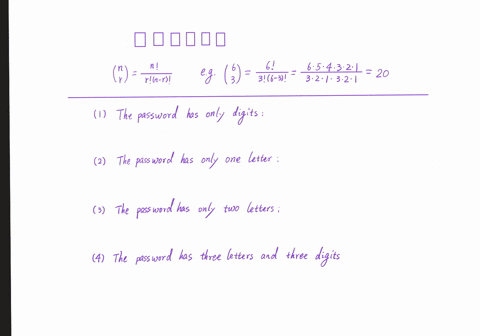 □ □ □ □ □ □
(n r) = n! / r!(n-r)! e.g. (6 3) = 6! / 3!(6-3)! = 6·5·4·3·2·1 / 3·2·1·3·2·1 = 20
(1) The password has only digits:
(2) The password has only one letter:
(3) The password has only two letters:
(4) The password has three letters and three digits